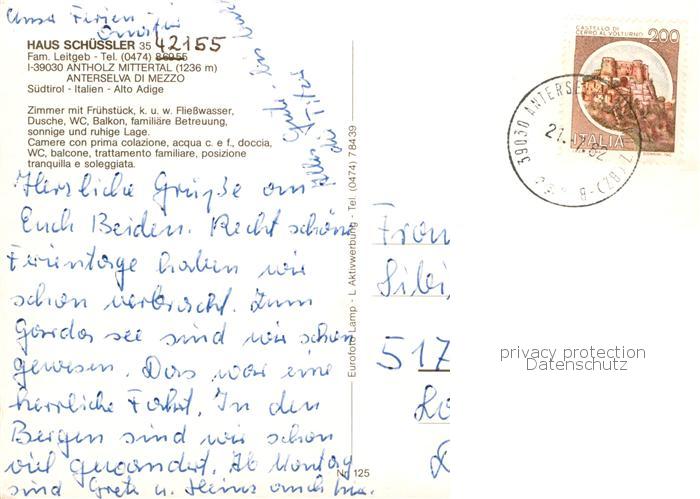 Unser Ferien
HAUS SCHÜSSLER 35 42155
Fam. Leitgeb - Tel. (0474) 86955
I-39030 ANTHOLZ MITTERTAL (1236 m)
ANTERSELVA DI MEZZO
Südtirol - Italien - Alto Adige
Zimmer mit Frühstück, k. u. w. Fließwasser,
Dusche, WC, Balkon, familiäre Betreuung,
sonnige und ruhige Lage.
Camere con prima colazione, acqua c. e f., doccia,
WC, balcone, trattamento familiare, posizione
tranquilla e soleggiata.
Alles Gute
Herzliche Grüße an
Euch Beiden. Recht schöne
Ferientage haben wir
schon verbracht. Zum
Gardasee sind wir schon
gewesen. Das war eine
herrliche Fahrt. In den
Bergen sind wir schon
viel gewandert. Ab Montag
sind Grete u. Heinz auch hier.
Eurofoto Lamp - L Aktivwerbung - Tel. (0474) 78439
Nr. 125
CASTELLO DI
CERRO AL VOLTURNO
200
ITALIA
39030 ANTERSE
(BZ)
Frau
Sibi
517
privacy protection
Datenschutz